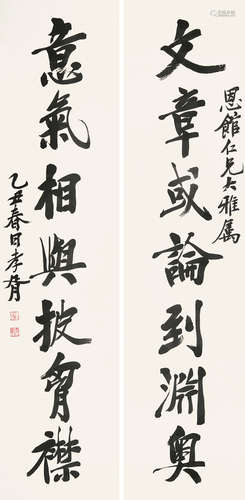 恩館仁兄大雅属
文章或論到淵奧
意氣相與披胷襟
乙丑春日孝胥